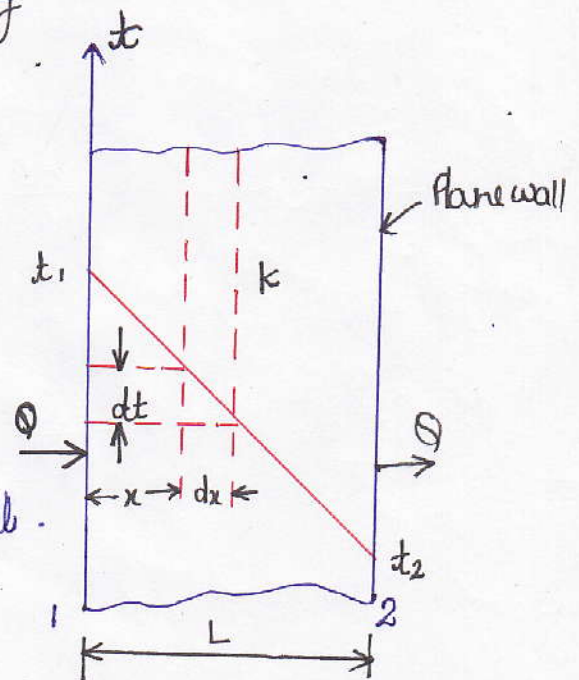 t
Plane wall
t₁
k
dt
Q
Q
x
dx
t₂
1
2
L